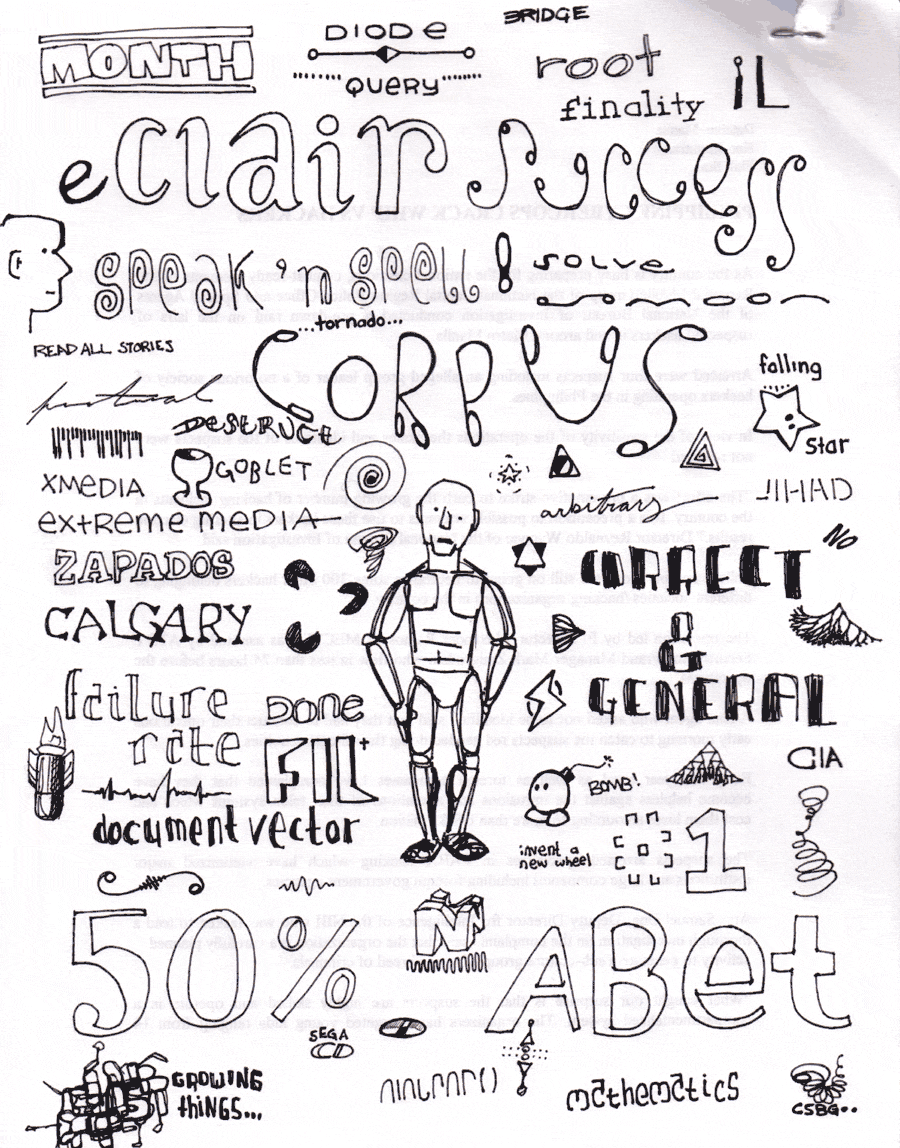 BRIDGE
DIODE
MONTH
QUERY
root
finality
IL
eclair success
SPEAK 'n SPELL
! SOLVE
...tornado...
READ ALL STORIES
CORPUS
falling
star
DESTRUCT
GOBLET
XMEDIA
arbitrary
JIHAD
extreme MEDIA
NO
ZAPADOS
CORRECT
CALGARY
&
GENERAL
failure
rate
DONE
CIA
BOMB!
document vector
invent a
new wheel
1
N
50% ABet
SEGA
GROWING
THINGS...
mathematics
CSBG..